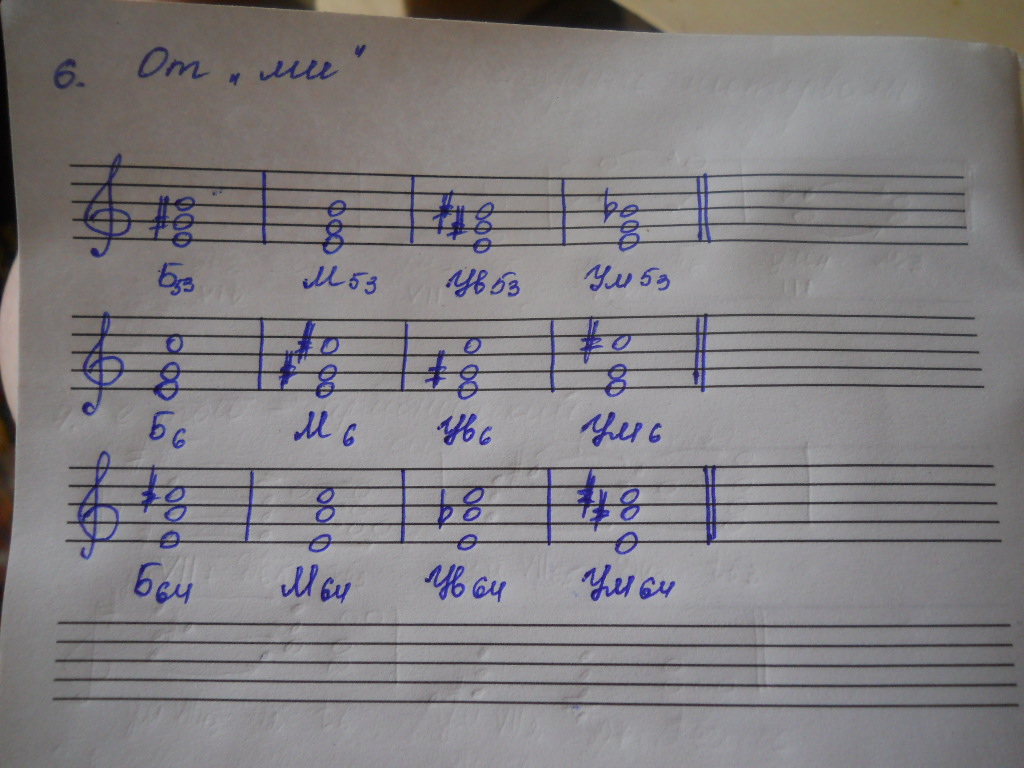 6. От „ми"
Б53 М53 Ув53 Ум53
Б6 М6 Ув6 Ум6
Б64 М64 Ув64 Ум64